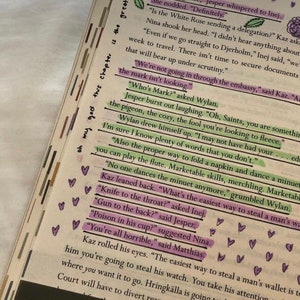 Jesper whispered to Inej,
she nodded. "Definitely."
"Is the White Rose sending a delegation?"
Nina shook her head. "I didn't hear anything about
"Even if we go straight to Djerholm," Inej said, "we
week to travel. There isn't time to secure documents
that will bear up under scrutiny."
"We're not going in through the embassy," said Kaz. "A
the mark isn't looking."
"Who's Mark?" asked Wylan.
Jesper burst out laughing. "Oh, Saints, you are somethin
the pigeon, the cozy, the fool you're looking to fleece.
Wylan drew himself up. "I may not have had your
I'm sure I know plenty of words that you don't."
"Also the proper way to fold a napkin and dance a minuet
you can play the flute. Marketable skills, merchling. Marketable
"No one dances the minuet anymore," grumbled Wylan.
Kaz leaned back. "What's the easiest way to steal a man's
"Knife to the throat?" asked Inej.
"Gun to the back?" said Jesper.
"Poison in his cup?" suggested Nina.
"You're all horrible," said Matthias.
Kaz rolled his eyes. "The easiest way to steal a man's wallet is to
him you're going to steal his watch. You take his attention
where you want it to go. Hringkälla is going to do
Court will have to divert res
oh my god this chapter is the great